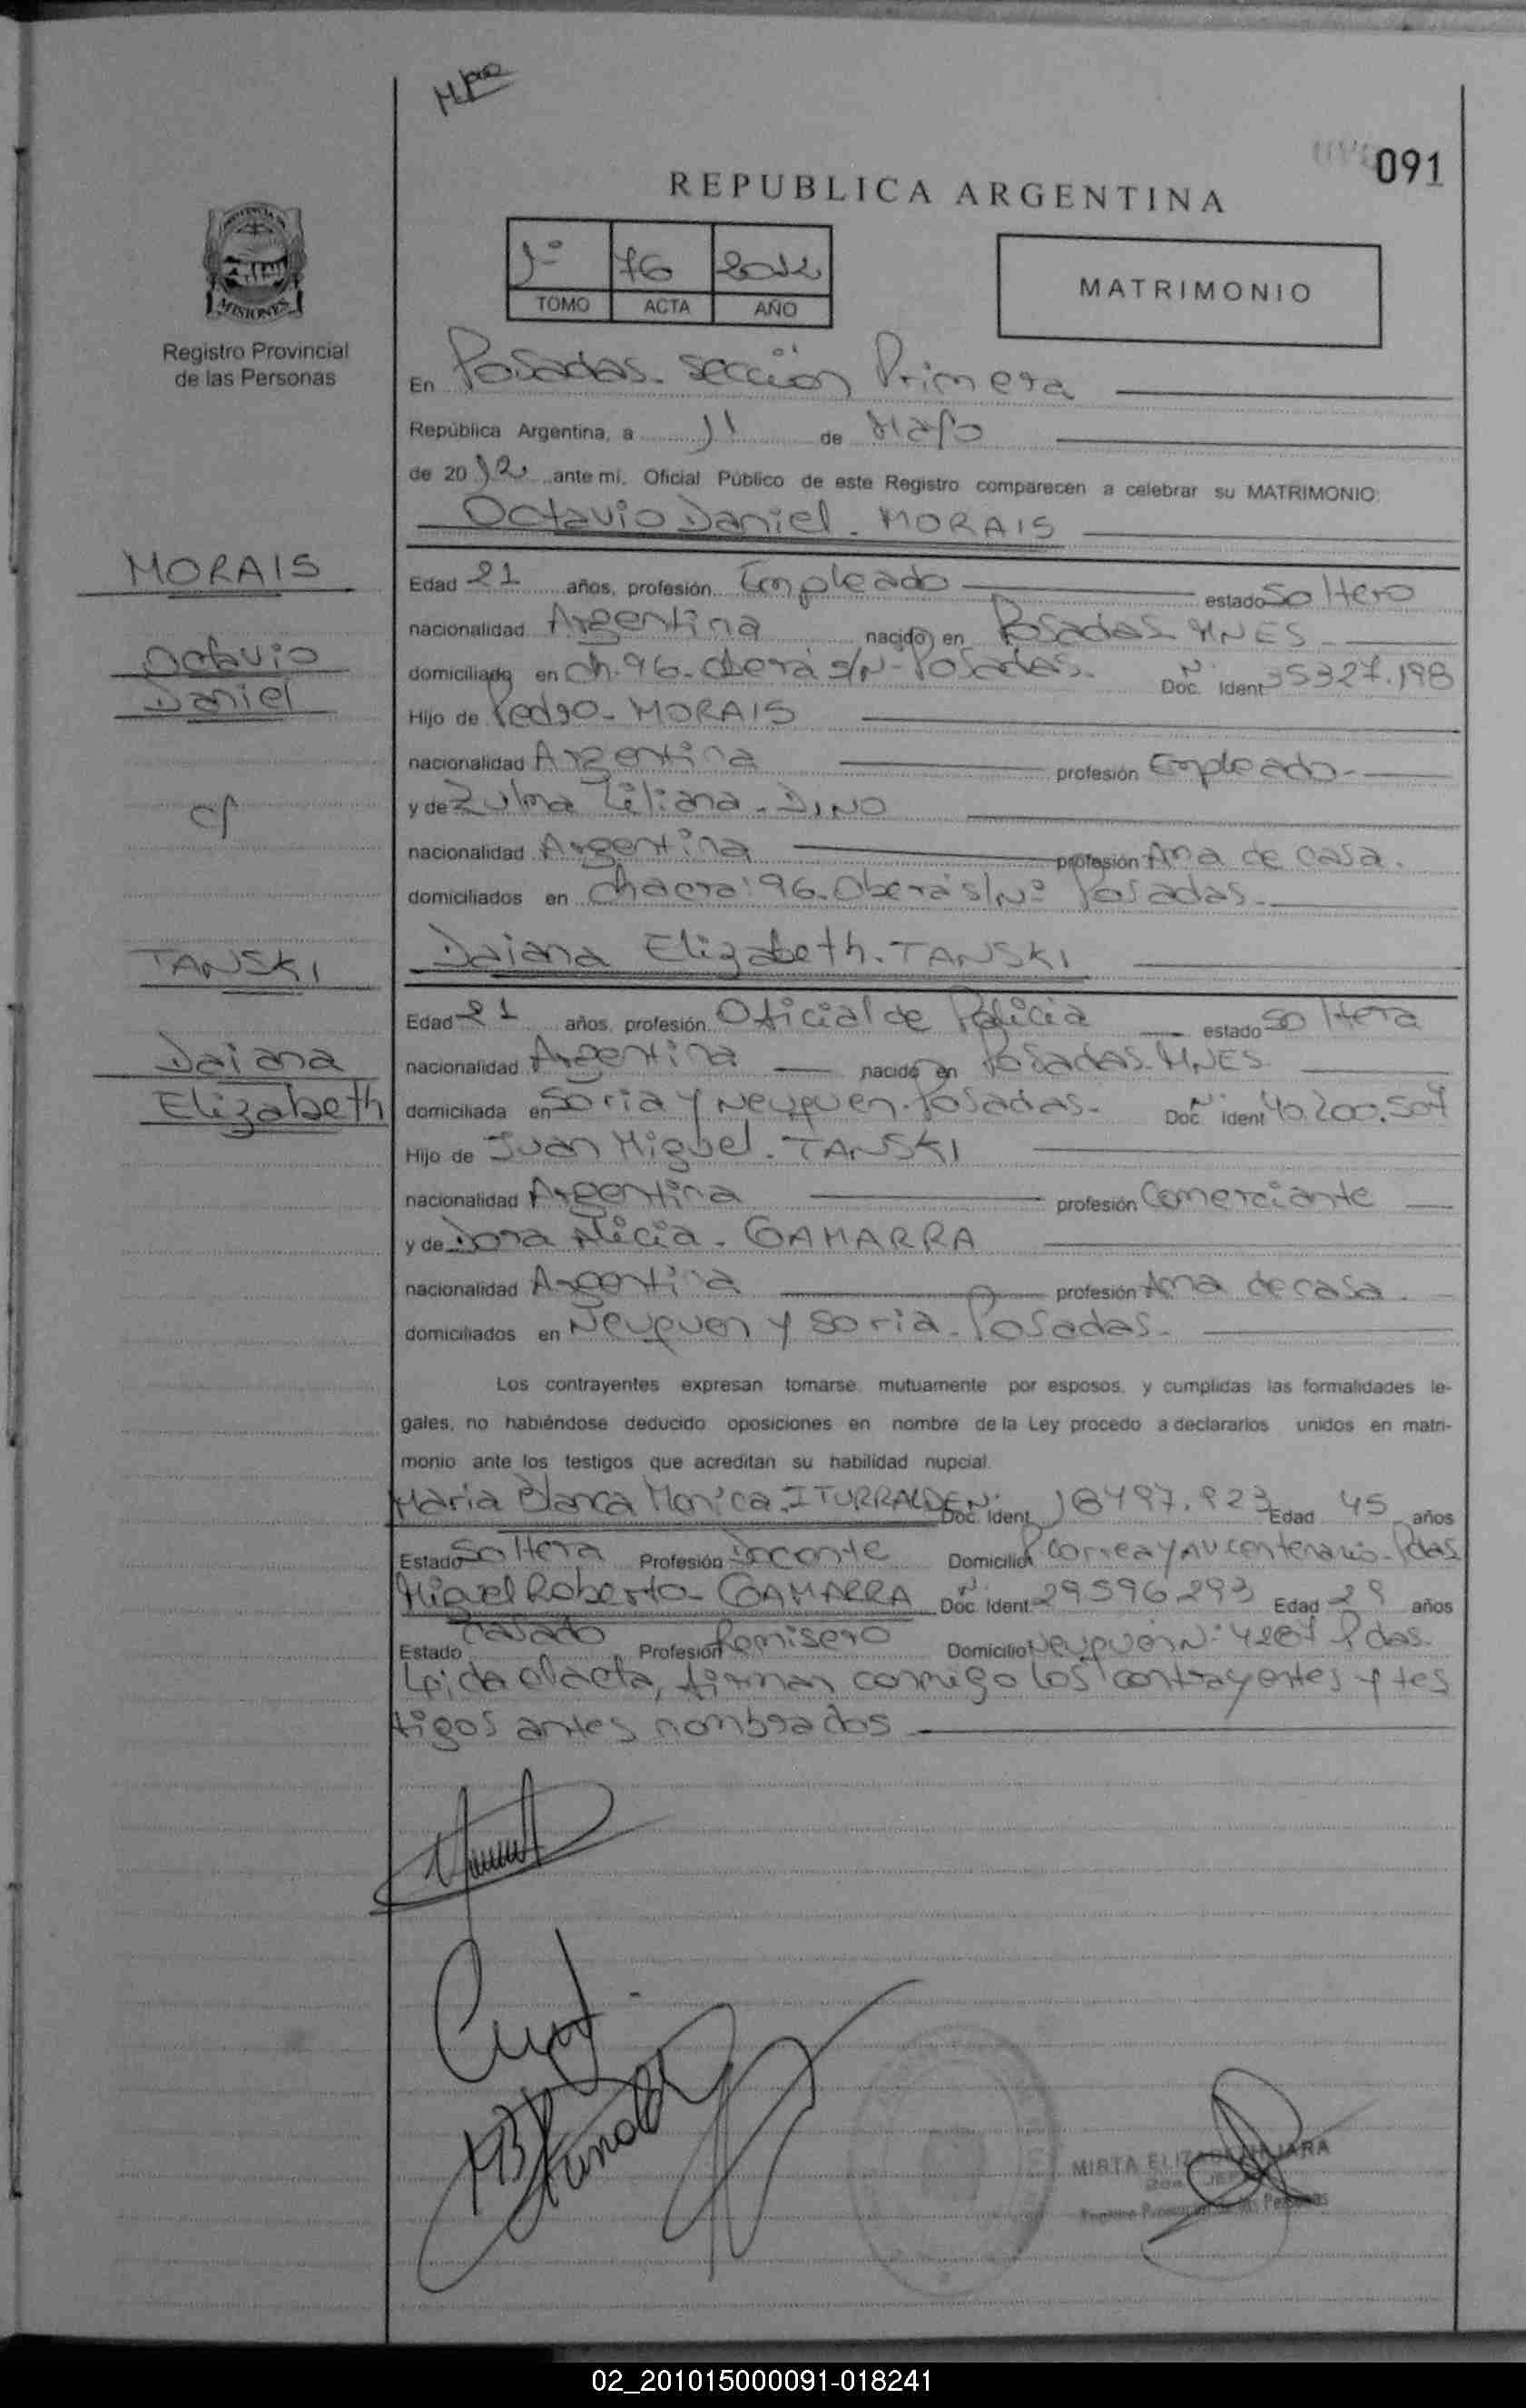 091
REPUBLICA ARGENTINA
PROVINCIA DE
MISIONES
Registro Provincial
de las Personas
1º 76 2012
TOMO ACTA AÑO
MATRIMONIO
En Posadas. Sección Primera
República Argentina, a 11 de Mayo
de 2012 ante mi, Oficial Público de este Registro comparecen a celebrar su MATRIMONIO:
Octavio Daniel. MORAIS
MORAIS
Octavio
Daniel
Edad 21 años, profesión Empleado estado Soltero
nacionalidad Argentina nacido en Posadas MNES
domiciliado en Ch. 96. Oberá S/N- Posadas. Nº Doc. Ident 35327.198
Hijo de Pedro- MORAIS
nacionalidad Argentina profesión Empleado-
y de Zulma Liliana. DINO
c/
nacionalidad Argentina profesión Ama de casa.
domiciliados en Chacra: 96. Oberá S/Nº Posadas.
TANSKI
Daiana
Elizabeth
Daiana Elizabeth. TANSKI
Edad 21 años, profesión Oficial de Policia estado Soltera
nacionalidad Argentina nacido en Posadas. MNES
domiciliada en Soria y Neuquen. Posadas- Nº Doc. Ident 40.200.507
Hijo de Juan Miguel. TANSKI
nacionalidad Argentina profesión Comerciante
y de Dora Alicia. GAMARRA
nacionalidad Argentina profesión Ama de casa.
domiciliados en Neuquen y Soria. Posadas-
Los contrayentes expresan tomarse mutuamente por esposos, y cumplidas las formalidades le-
gales, no habiéndose deducido oposiciones en nombre de la Ley procedo a declararlos unidos en matri-
monio ante los testigos que acreditan su habilidad nupcial.
Maria Blanca Monica. ITURRALDE Nº Doc. Ident 18497.923 Edad 45 años
Estado Soltera Profesión Docente Domicilio Correa y AV Centenario- Pdas
Miguel Roberto- GAMARRA Nº Doc. Ident 29596293 Edad 29 años
Estado Casado Profesión Remisero Domicilio Neuquén Nº 4267 Pdas.
Leida el acta, firman conmigo los contrayentes y tes
tigos antes nombrados
MIRTA
Registro Provincial de las Personas
02_201015000091-018241